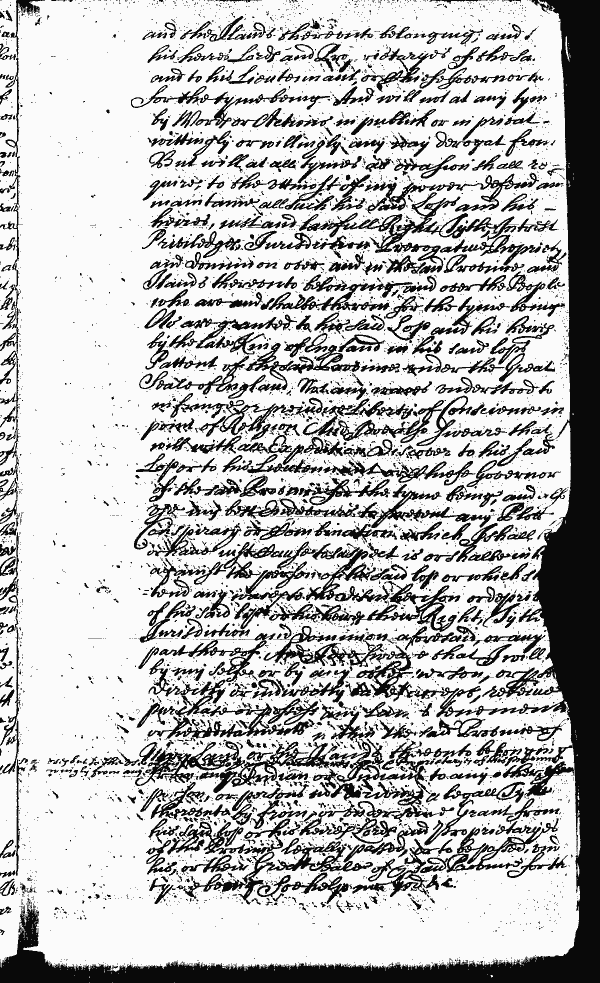 and the Ilands thereunto belonging, and
his heires Lords and Proprietaryes of the Sa
and to his Lieutennant or Chiefe Governor
for the tyme being And will not at any tym
by Words or Actions in publick or in privat
wittingly or willingly any way derogat from
But will at all tymes as occasion shall re
quire, to the utmost of my power defend an
maintaine all such his said Lopps and his
heires, iust and lawfull Right, Tytle Interest
Priviledges Iurisdiction Prerogative Propriety
and Dominion over and in the said Province and
Ilands thereunto belonging, and over the People
who are and shalbe therein for the tyme being
As are granted to his said Lopp and his heires
by the late King of England in his said lopps
Pattent of the said Province under the Great
Seale of England, Not any waies understood to
infringe or preiudice Liberty of Conscience in
point of Religion And I doe also Sweare that I
will with all Expedition Discover to his said
Lopp or to his Lieutennant or Chiefe Governor
of the said Province for the tyme being and also
use my best Endeavours to prevent any Plott
Conspiracy or Combination which I shall
or have iust Cause to suspect is or shalbe in
against the person of his said lopp or which
tend any waies to the disinherison or depriv
of his said lopp or his heires their Right, Tytle
Iurisdiction and Dominion aforesaid, or any
part thereof And I doe Sweare that I will
by my selfe or by any other person, or
directly or indirectly take accept, receive
purchase or possess any Lands tenements
or hereditaments within the said Province of
Mary Land or the Ilands thereunto belonging
from any Indian or Indians to any other
person, or persons not deriving a legall Tytle
thereunto by from, or under some Grant from
his said lopp or his heires Lords and Proprietaryes
of this Province legally passed, or to be passed, und
his, or their Great Seale of the said Province for th
tyme being Soe help me God &c